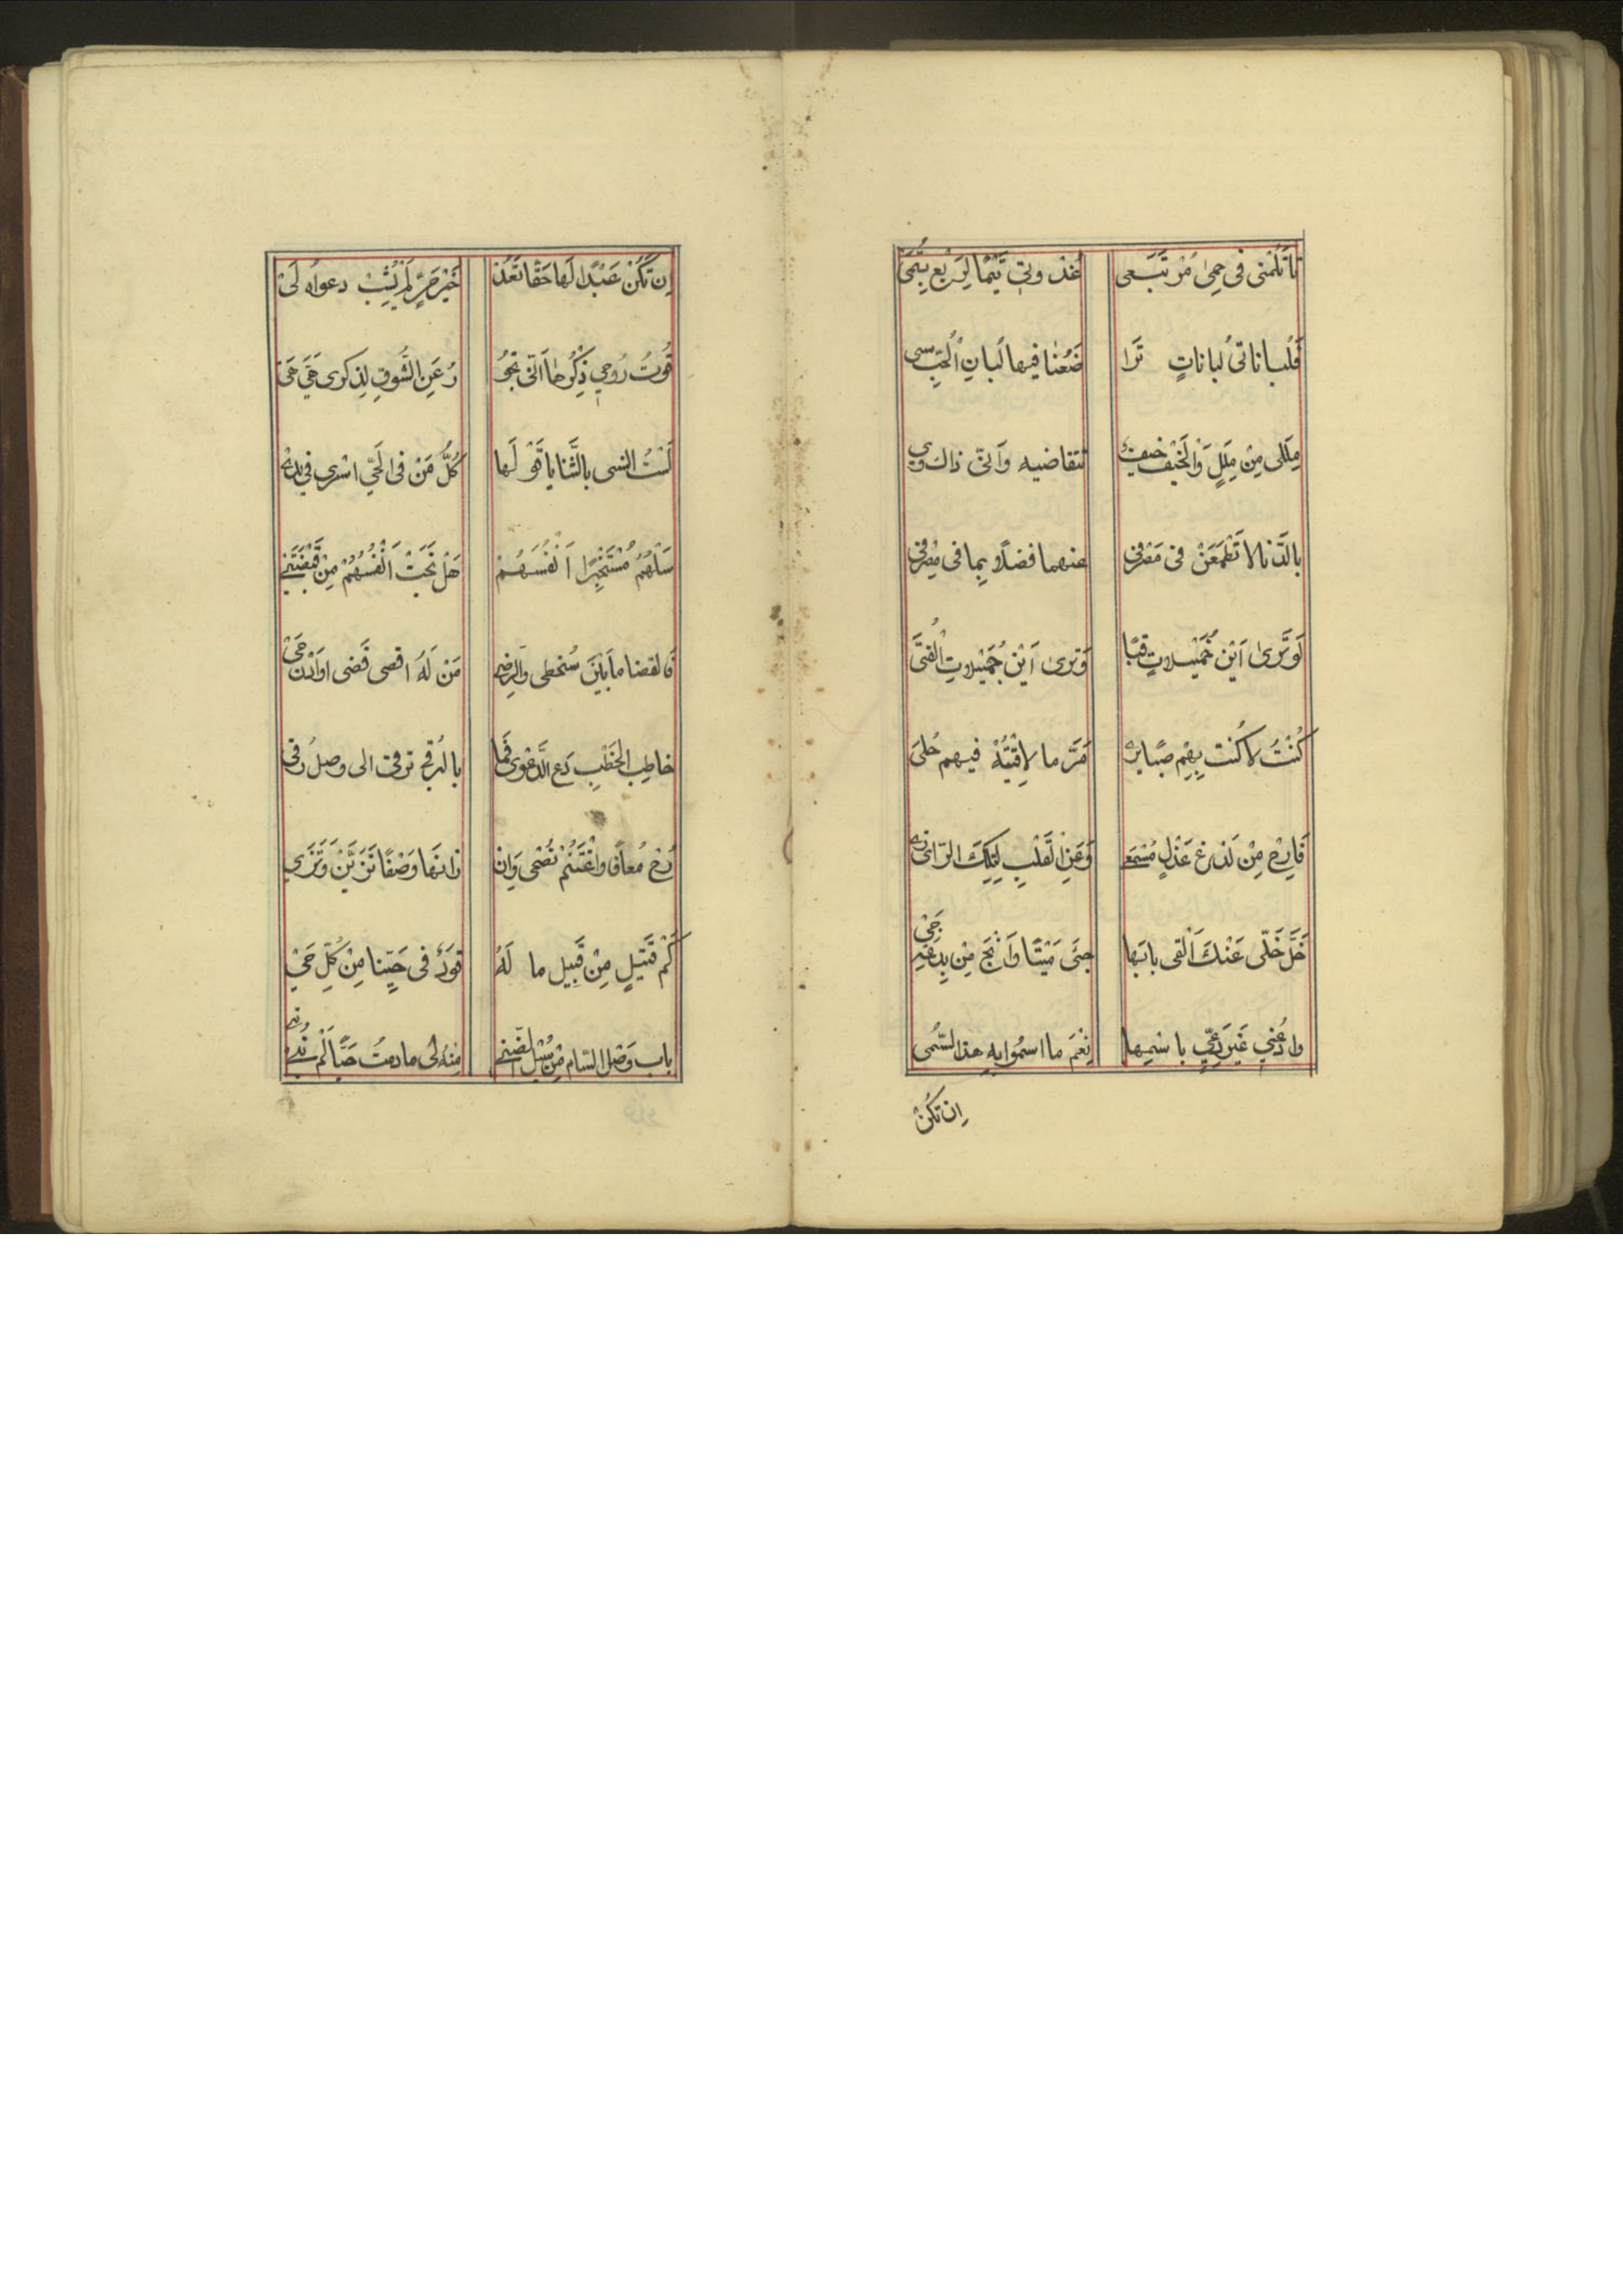 تا تلمنى فى حِمىٰ مُرتبَعى عُدْ وتى تَيْمًا لِرَبعِ بِتُمَىّ
فَلُباناتى لُباناتٍ تَرا ضَعُنا فيها لُبانِ الُحبِّ سى
مِلَلى مِنْ مِلَلٍ وَالخَيْف حيفٌ تتقاضيه وَانّى ذاك وىِ
بالدّنا لا تَطْمَعَنْ فى مَصْرفى عنهما فضلاً بِما فى مِصْرفى
لَوتَرىٰ اَيْنَ خُمَيْلاتِ قبًا وَترىٰ اَيْنَ جُمَيْلاتِ الْقُبَىَّ
كُنْتُ لا كُنت بِهِم صبًا يرىٰ مَرَّ ما لاقَيْتُهُ فيهم حُلىَ
فَارِحْ مِنْ لذعِ عَذْلٍ مُسْمَعى وَعَنِ القَلْبِ لِتِلْكَ الرّاى زى
خَلِّ خَلّى عَنْكَ اَلْقى بابَها جئَ مَيْتًا وَانْجُ مِنْ بِدعَةِ جَىّ
وادْعُنى غَيْرَ دَعِىٍّ باسْمِها نِعْمَ ما اسمُوا بِهِ هذا السُّمى
اِن تكُنْ
اِن تَكُنْ عَبْدًا لَها حَقًا تَعُدْ خَيْرَ حُرٍّ لَمْ يُشِبْ دعواهُ لَىّ
قُوتُ رُوحى ذِكْرُها اَنّى تحُوُ رُ عَنِ الشَّوقِ لِذِكرى هَىِّ هَىّ
لَسْتُ انسى بالثَّنايا قَوْلَها كُلُّ مَنْ فى الَحىِّ اسْرى فى يدى
سَلْهُمُ مُسْتَخْبِرًا اَنْفُسَهُمْ هَلْ نَجَتْ اَنْفُسُهُمْ مِنْ قَبْضَتَىّ
فالقضا مابَيْنَ سُخطى والرِضى مَنْ لَهُ اقصى قَضى اوَادْنُ حَىّ
خاطِبَ الخَطْبِ دَعِ الدَّعْوى فَما بالرُقى ترقى الى وصلِ رُقى
رُحْ مُعافًا وَاغْتَنِمْ نُصْحى وَاِن زانَها وَصْفًا تَزَيَّنْ وَتَزَىّ
كَمْ قَتيلٍ مِنْ قَبيلٍ ما لَهُ قوَدٌ فى حَبّنا مِنْ كُلِّ حَىّ
باب وَصْلِ السّام مِنْ سُبْلِ الضَّنى مِنْهُ لى مادمتُ حَيًّا لَمْ